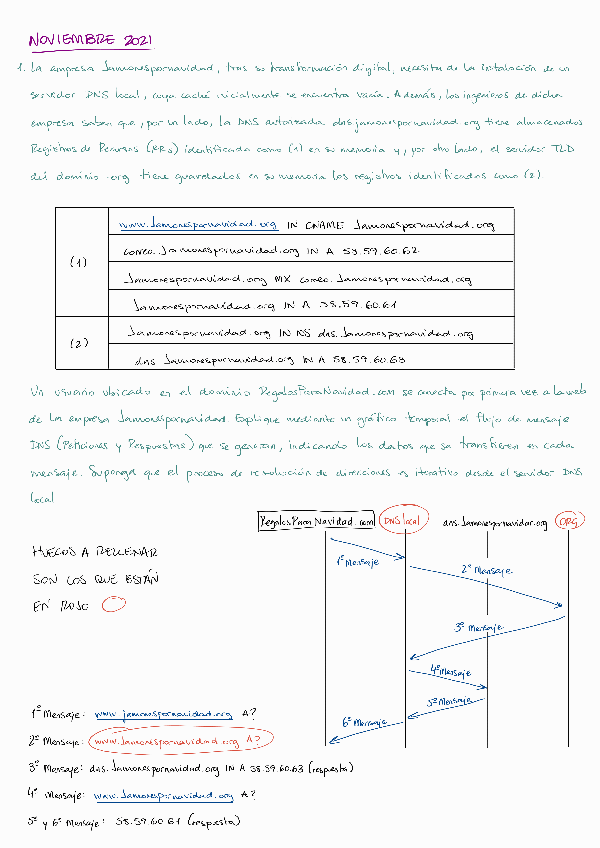 NOVIEMBRE 2021
1. La empresa Jamonespornavidad, tras su transformación digital, necesita de la instalación de un
servidor DNS local, cuya caché inicialmente se encuentra vacía. Además, los ingenieros de dicha
empresa saben que, por un lado, la DNS autorizada dns.jamonespornavidad.org tiene almacenados
Registros de Recursos (RRs) identificada como (1) en su memoria y, por otro lado, el servidor TLD
del dominio .org tiene guardados en su memoria los registros identificados como (2)
(1)
www.Jamonespornavidad.org IN CNAME Jamonespornavidad.org
correo.Jamonespornavidad.org IN A 58.59.60.62
Jamonespornavidad.org MX correo.Jamonespornavidad.org
Jamonespornavidad.org IN A 58.59.60.61
(2)
Jamonespornavidad.org IN NS dns.Jamonespornavidad.org
dns Jamonespornavidad.org IN A 58.59.60.63
Un usuario ubicado en el dominio RegalosParaNavidad.com se conecta por primera vez a la web
de la empresa Jamonespornavidad. Explique mediante un gráfico temporal el flujo de mensaje
DNS (Peticiones y Respuestas) que se generan, indicando los datos que se transfieren en cada
mensaje. Suponga que el proceso de resolución de direcciones es iterativo desde el servidor DNS
local
RegalosParaNavidad.com DNS local dns.Jamonespornavidad.org ORG
HUECOS A RELLENAR
SON LOS QUE ESTÁN
EN ROJO
1º Mensaje
2º Mensaje
3º Mensaje
4º Mensaje
5º Mensaje
6º Mensaje
1º Mensaje: www.jamonespornavidad.org A?
2º Mensaje: www.Jamonespornavidad.org A?
3º Mensaje: dns.Jamonespornavidad.org IN A 58.59.60.63 (respuesta)
4º Mensaje: www.Jamonespornavidad.org A?
5º y 6º Mensaje: 58.59.60.61 (respuesta)